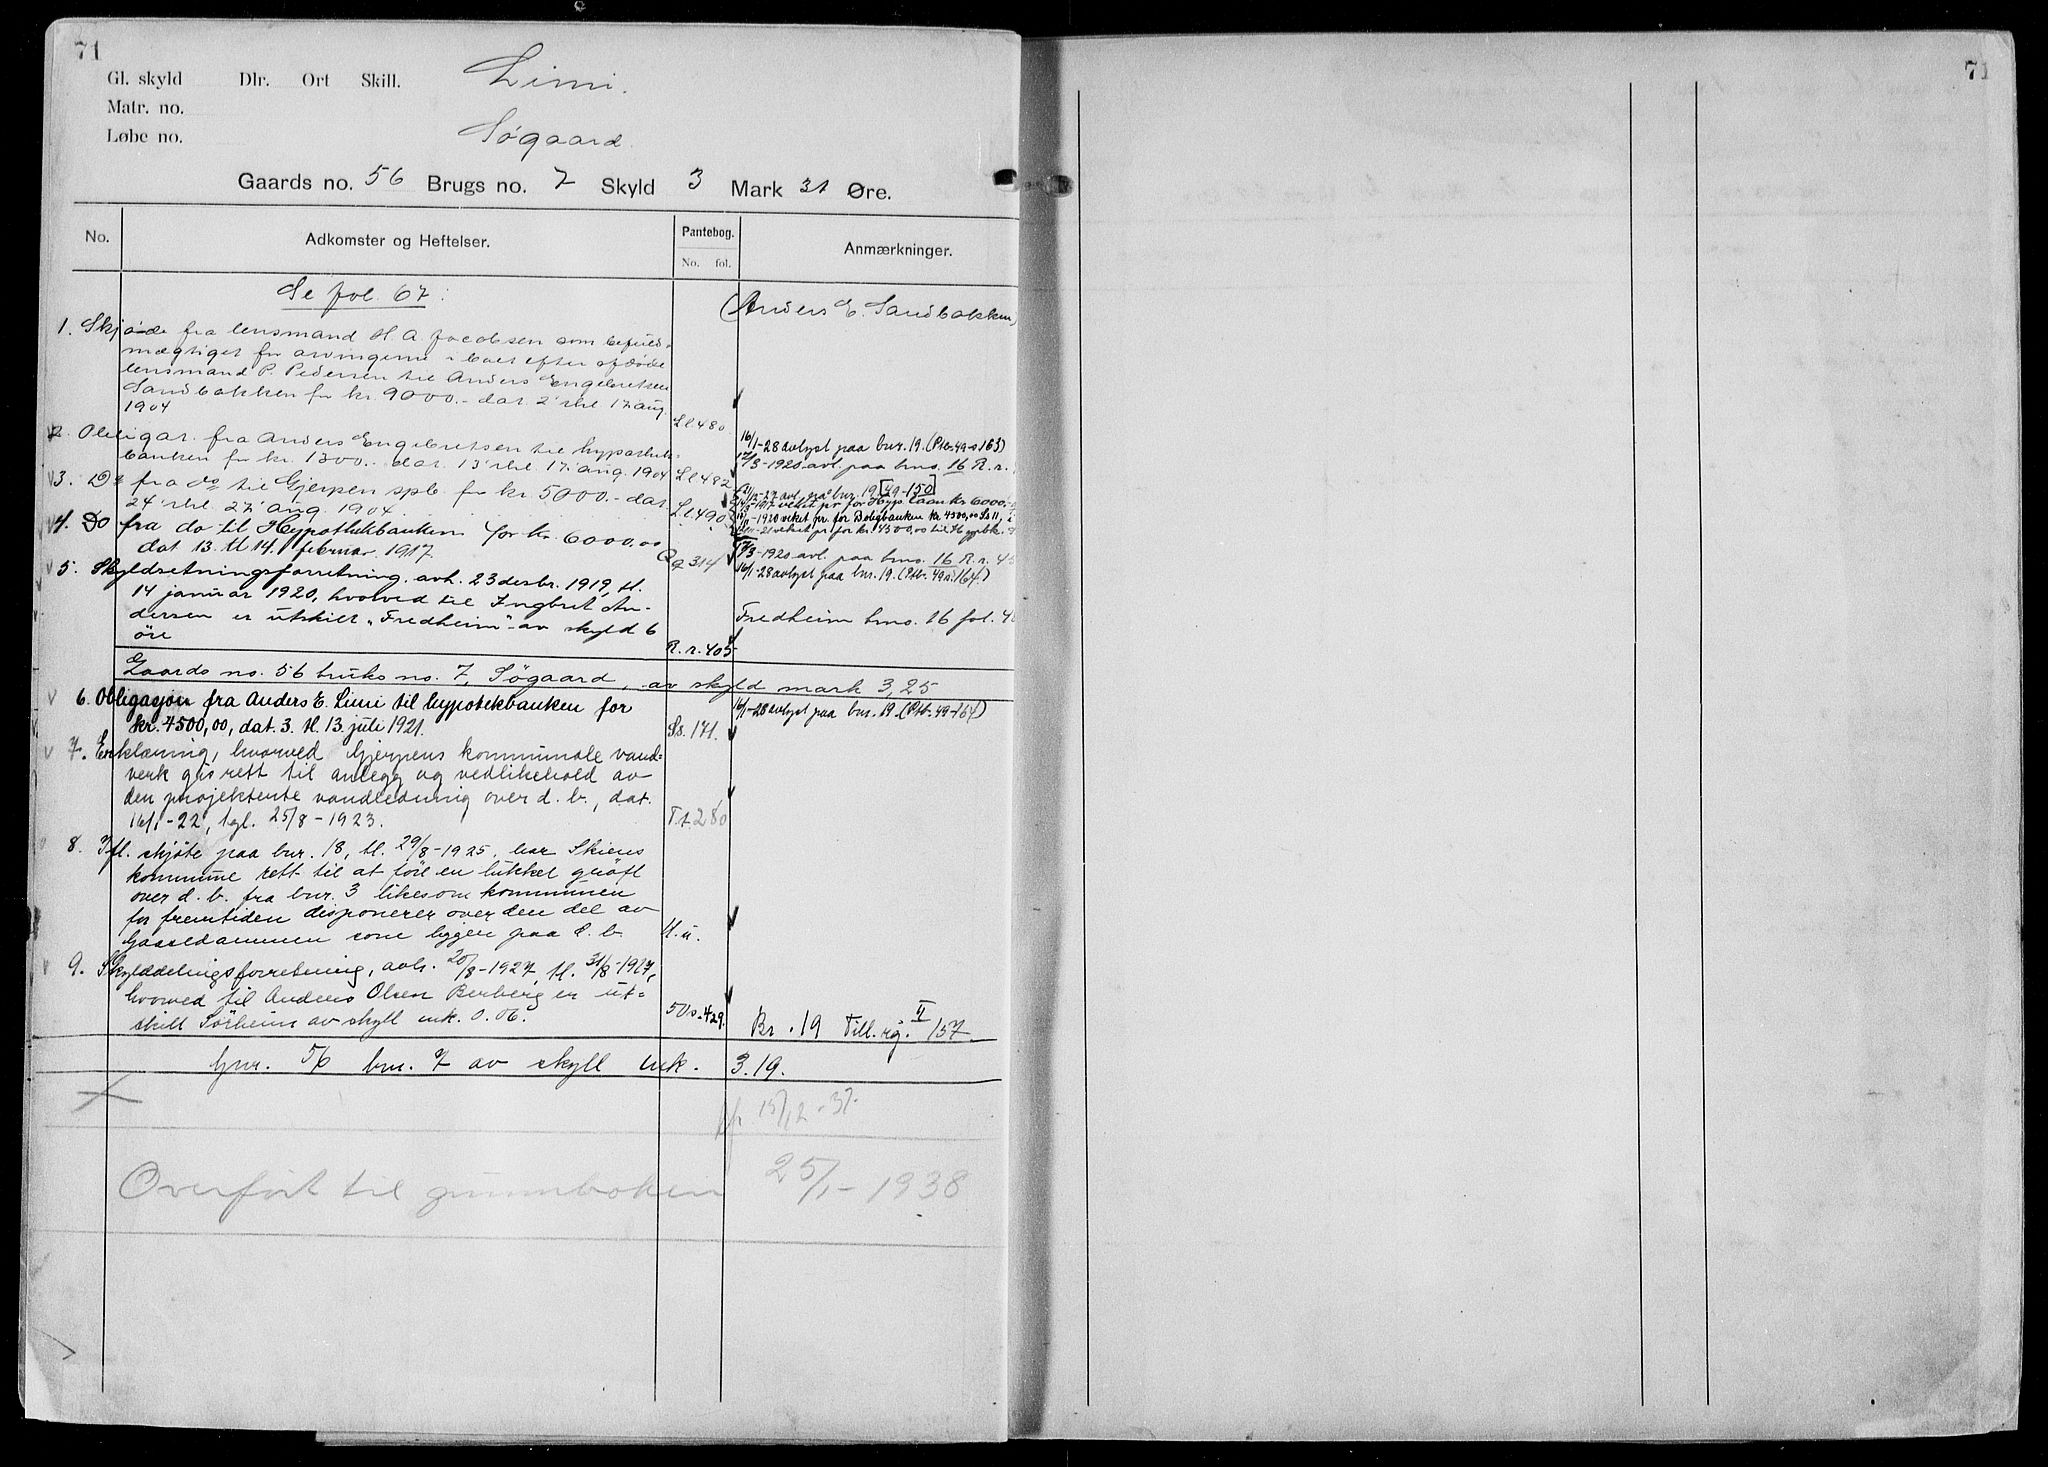 71
Gl. skyld Dlr. Ort Skill. Limi.
Matr. no.
Løbe no. Søgaard.
Gaards no. 56 Brugs no. 7 Skyld 3 Mark 31 Øre.
No. Adkomster og Heftelser. Pantebog. No. fol. Anmærkninger.
Se fol. 67. (Anders E. Sandbakken)
1. Skjøde fra lensmand H. A. Jacobsen som befuld-
mægtiget for arvingerne i boet efter afdøde
lensmand P. Pedersen til Anders Engebretsen
Sandbakken for kr. 9000.- dat. 2 thl 17 aug.
1904 Ll 480
2. Obligat. fra Anders Engebretsen til hypothek-
banken for kr. 1300.- dat. 13 thl. 17 aug. 1904 Ll 482
16/1-28 avlyst paa bnr. 19. (Ptb. 49-s 163)
17/3-1920 avl. paa bno. 16 R. r.
3. Do fra do til Gjerpen spb for kr. 5000.- dat.
24 thl. 27 aug. 1904. Ll. 490
avl. paa bnr. 19. [49-150]
1917 veket pr for Hyp. laan kr 6000.-
1920 veket pr. for Boligbanken kr 4500,00 Ss 11,
-21 veket pr for kr. 4500,00 til Hypbk.
4. Do fra do til Hypothekbanken for kr. 6000,00
dat 13. tl 14. februar 1917. Qq 314
17/3-1920 avl. paa bno. 16 R. r. 45
16/1-28 avlyst paa bnr. 19. (Ptb. 49 s. 164.)
5. Skyldsetningsforretning, avh. 23 desbr. 1919, tl.
14 januar 1920, hvorved til Ingbret An-
dersen er utskilt "Fredheim" av skyld 6
øre R. r. 405
Fredheim bno. 16 fol. 4
Gaards no. 56 bruks no. 7, Søgaard, av skyld mark 3,25
6. Obligasjon fra Anders E. Limi til hypotekbanken for
kr. 4500,00, dat. 3. tl. 13. juli 1921. Ss. 171.
16/1-28 avlyst paa bnr. 19. (Ptb. 49-164)
7. Erklæring, hvorved Gjerpens kommunale vand-
verk gis rett til anlegg og vedlikehold av
den projekterte vandledning over d. b., dat.
16/1-22, tgl. 25/8-1923. T.t 280
8. Ifl. skjøte paa bnr. 18, tl. 29/8-1925, har Skiens
kommune rett til at føre en lukket grøft
over d. b. fra bnr. 3 likesom kommunen
for fremtiden disponerer over den del av
Gaasedammen som ligger paa d. b. U. u.
9. Skylddelingsforretning, avh. 20/8-1927, tl. 31/8-1927,
hvorved til Anders Olsen Berberg er ut-
skilt Sørheim av skyll mk. 0.06. 50s.429.
Br. 19 Till. rg. II/157.
Gnr. 56 bnr. 7 av skyll mk. 3.19.
15/12-37.
Overført til grunnboken 25/1-1938
71